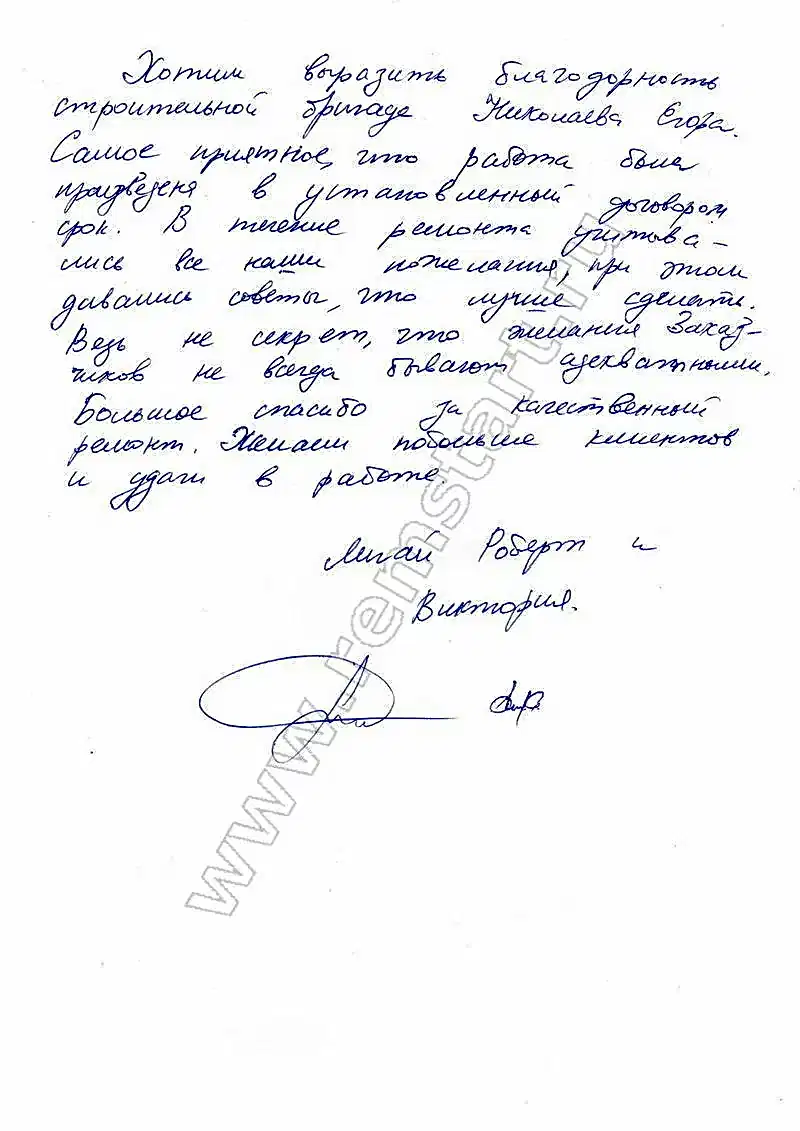 Хотим выразить благодорность
строительной бригаде Николаева Егора.
Самое приятное, что работа была
произведена в установленный договором
срок. В течение ремонта учитыва-
лись все наши пожелания, при этом
давались советы, что лучше сделать.
Ведь не секрет, что желания Заказ-
чиков не всегда бывают адекватными.
Большое спасибо за качественный
ремонт. Желаем побольше клиентов
и удачи в работе.
Роберт и
Виктория.
www.remstart.ru